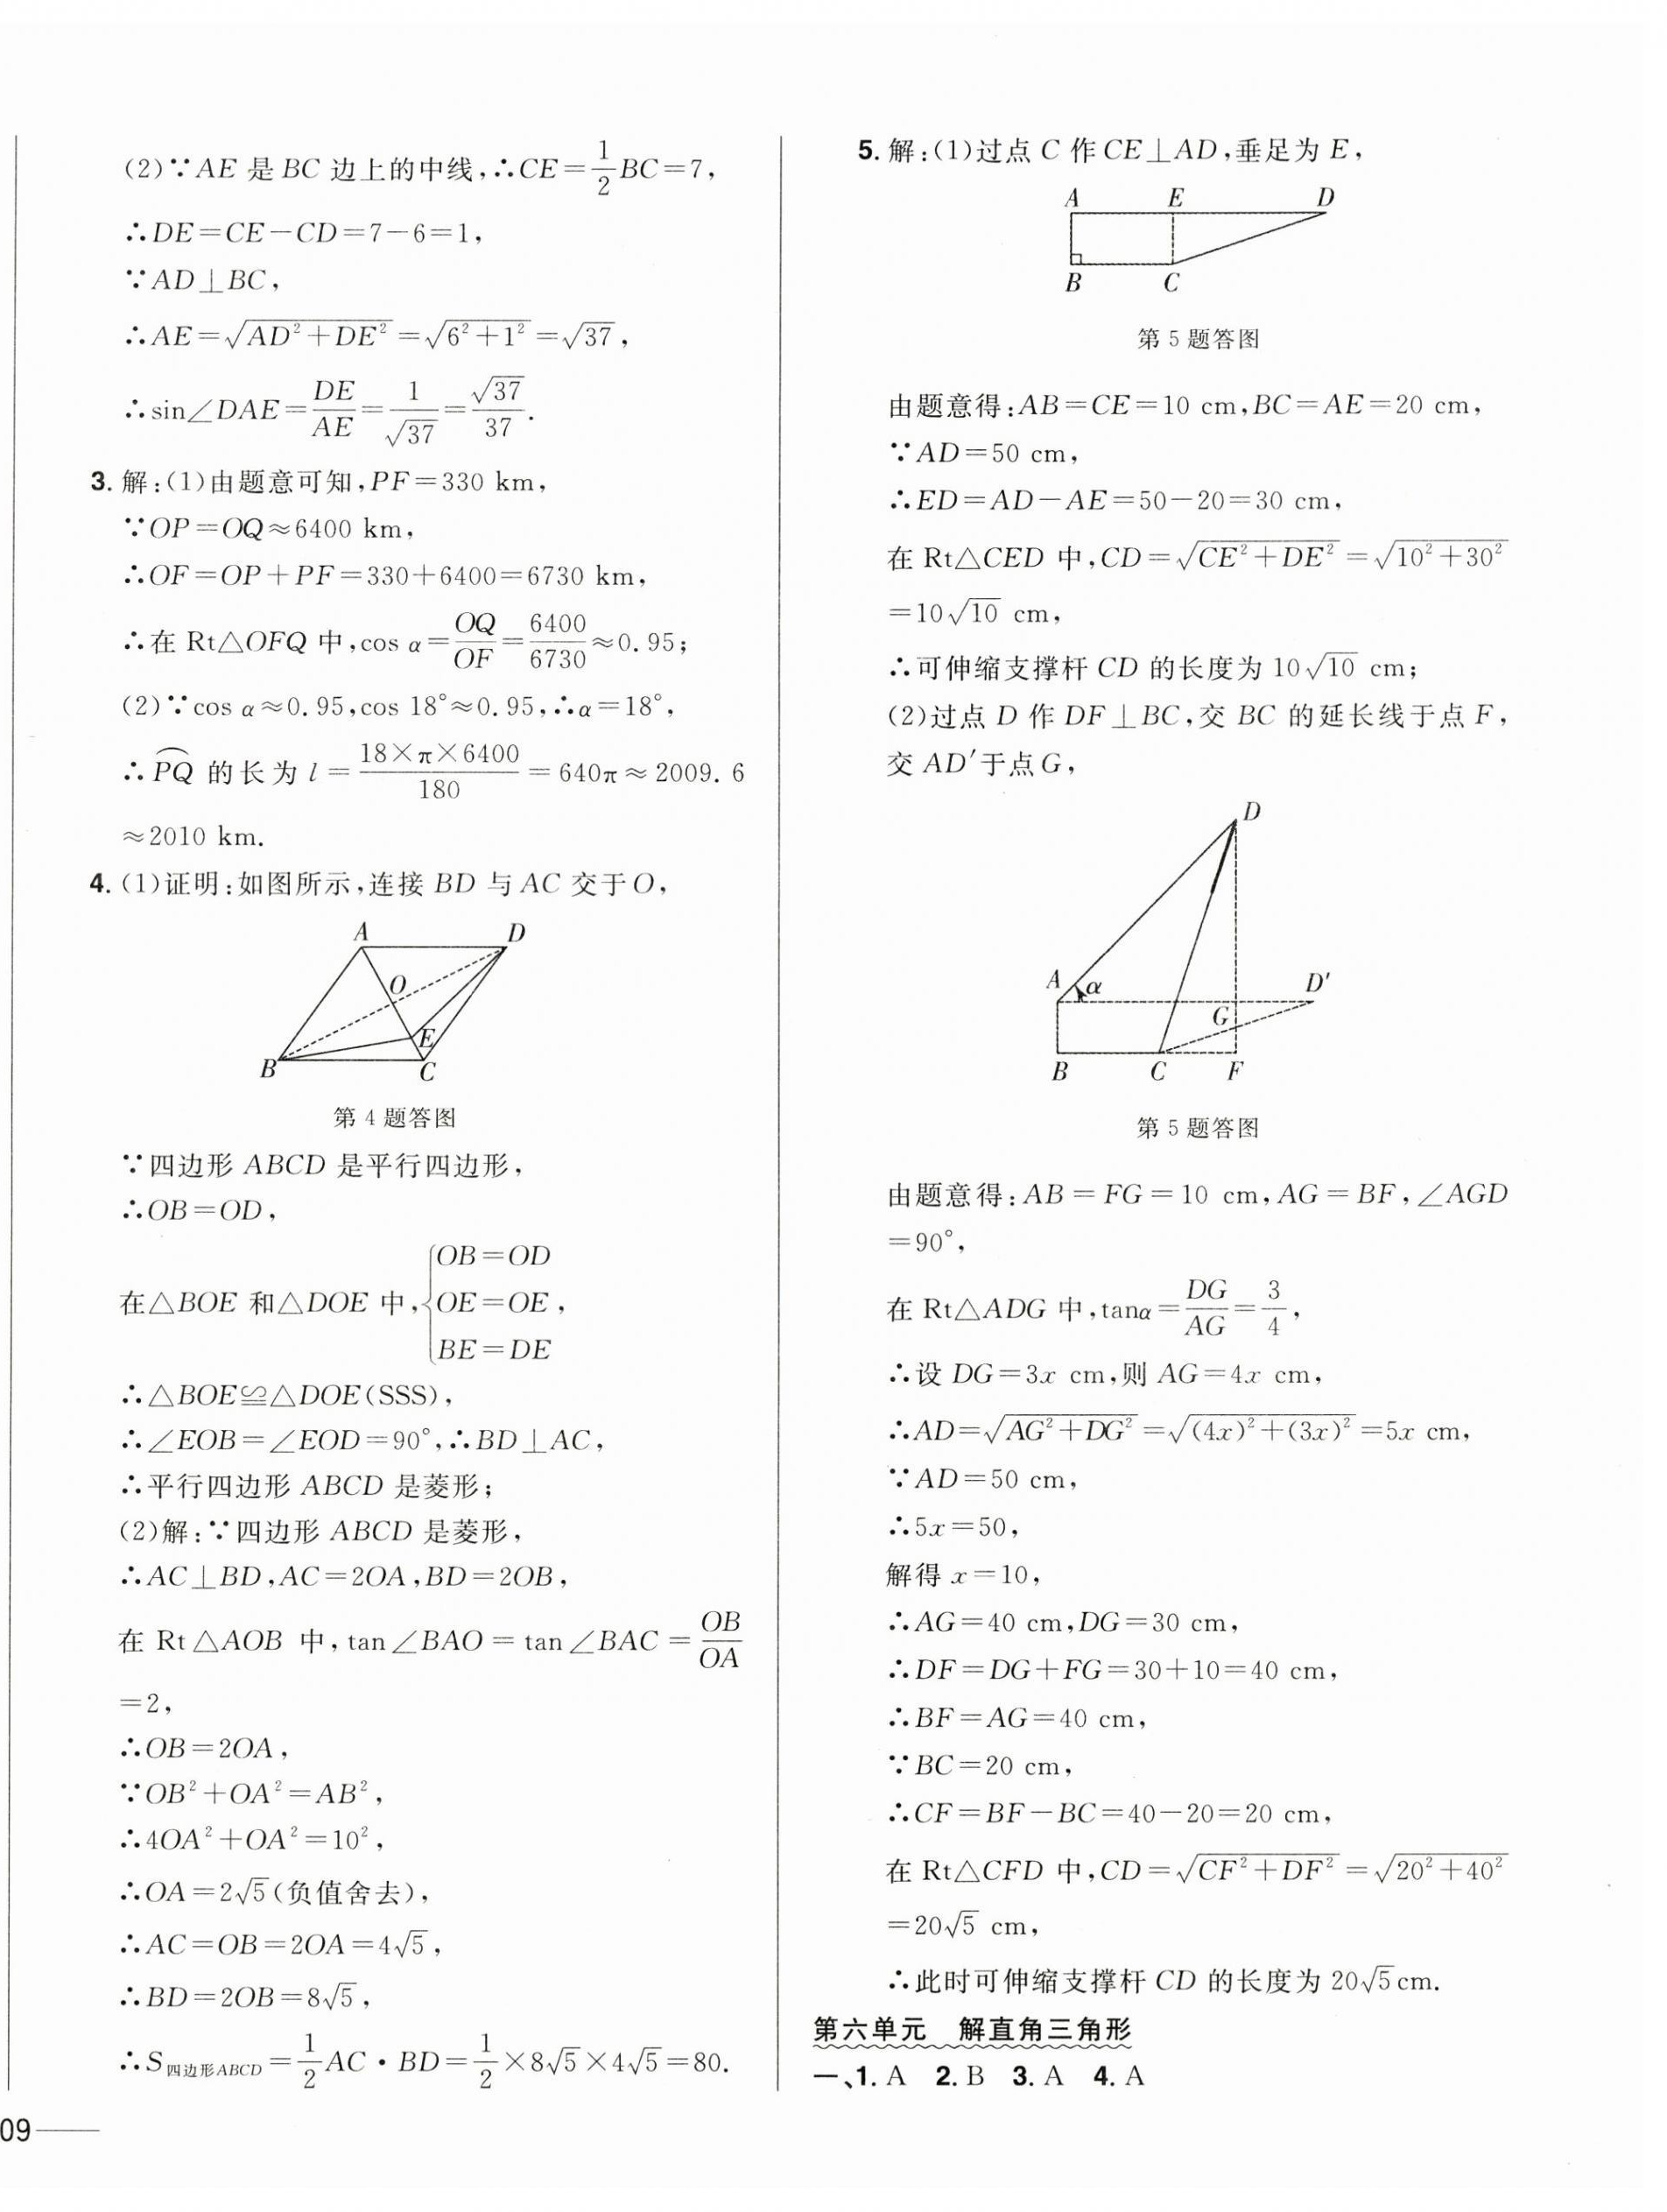 (2)∵AE 是 BC 边上的中线,∴CE=1/2BC=7,
∴DE=CE-CD=7-6=1,
∵AD⊥BC,
∴AE=√(AD²+DE²)=√(6²+1²)=√37,
∴sin∠DAE=DE/AE=1/√37=√37/37.
3. 解:(1)由题意可知,PF=330 km,
∵OP=OQ≈6400 km,
∴OF=OP+PF=330+6400=6730 km,
∴在 Rt△OFQ 中,cos α=OQ/OF=6400/6730≈0.95;
(2)∵cos α≈0.95,cos 18°≈0.95,∴α=18°,
∴⌒PQ 的长为 l=(18×π×6400)/180=640π≈2009.6
≈2010 km.
4. (1)证明:如图所示,连接 BD 与 AC 交于O,
A D
O
E
B C
第 4 题答图
∵四边形 ABCD 是平行四边形,
∴OB=OD,
OB=OD
在△BOE 和△DOE 中,{OE=OE,
BE=DE
∴△BOE≌△DOE(SSS),
∴∠EOB=∠EOD=90°,∴BD⊥AC,
∴平行四边形 ABCD 是菱形;
(2)解:∵四边形 ABCD 是菱形,
∴AC⊥BD,AC=2OA,BD=2OB,
在 Rt△AOB 中,tan∠BAO=tan∠BAC=OB/OA
=2,
∴OB=2OA,
∵OB²+OA²=AB²,
∴4OA²+OA²=10²,
∴OA=2√5(负值舍去),
∴AC=OB=2OA=4√5,
∴BD=2OB=8√5,
∴S四边形ABCD=1/2AC·BD=1/2×8√5×4√5=80.
09
5. 解:(1)过点 C 作 CE⊥AD,垂足为 E,
A E D
B C
第 5 题答图
由题意得:AB=CE=10 cm,BC=AE=20 cm,
∵AD=50 cm,
∴ED=AD-AE=50-20=30 cm,
在 Rt△CED 中,CD=√(CE²+DE²)=√(10²+30²)
=10√10 cm,
∴可伸缩支撑杆 CD 的长度为 10√10 cm;
(2)过点 D 作 DF⊥BC,交 BC 的延长线于点 F,
交 AD′于点G,
D
A α D′
G
B C F
第 5 题答图
由题意得:AB=FG=10 cm,AG=BF,∠AGD
=90°,
在 Rt△ADG 中,tanα=DG/AG=3/4,
∴设 DG=3x cm,则 AG=4x cm,
∴AD=√(AG²+DG²)=√((4x)²+(3x)²)=5x cm,
∵AD=50 cm,
∴5x=50,
解得 x=10,
∴AG=40 cm,DG=30 cm,
∴DF=DG+FG=30+10=40 cm,
∴BF=AG=40 cm,
∵BC=20 cm,
∴CF=BF-BC=40-20=20 cm,
在 Rt△CFD 中,CD=√(CF²+DF²)=√(20²+40²)
=20√5 cm,
∴此时可伸缩支撑杆 CD 的长度为 20√5cm.
第六单元 解直角三角形
一、1. A 2. B 3. A 4. A